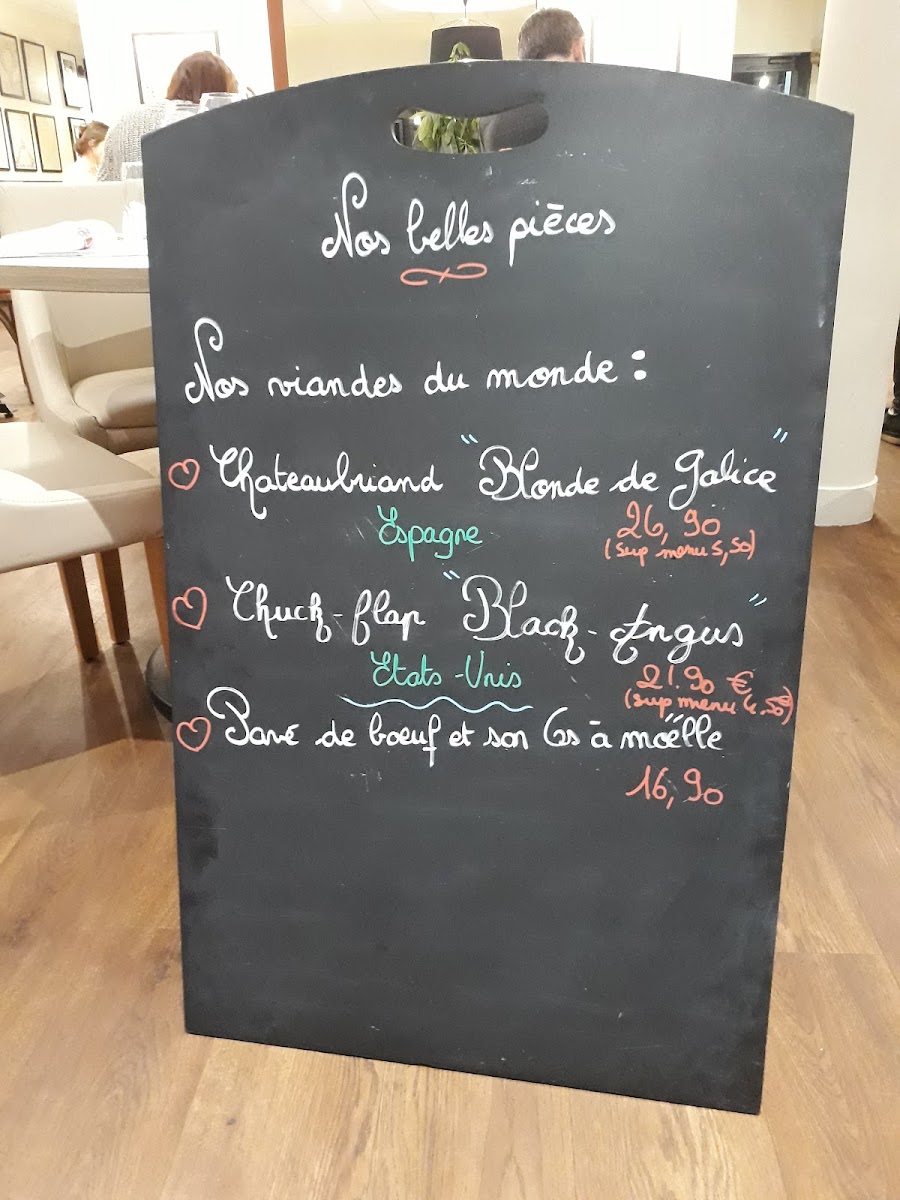 Nos belles pièces
Nos viandes du monde :
Chateaubriand "Blonde de Galice"
Espagne
26,90
(sup menu 5,50)
Chuck-flap "Black-Angus"
Etats-Unis
21.90 €
(sup menu 4.50)
Pavé de boeuf et son Os à moëlle
16,90